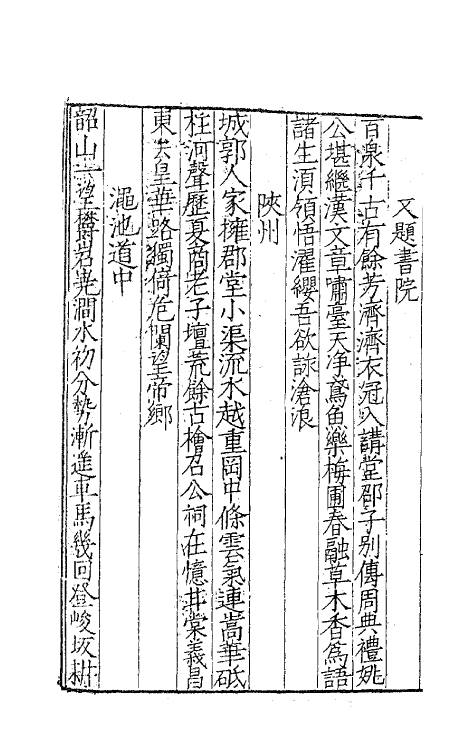 又題書院
百泉千古有餘芳濟濟衣冠入講堂邵子別傳周典禮姚
公堪繼漢文章嘯臺天净鳶魚樂梅圃春融草木香爲語
諸生須領悟濯纓吾欲詠滄浪
陜州
城郭人家擁郡堂小渠流水越重岡中條雲氣連嵩華砥
柱河聲歷夏商老子壇荒餘古檜召公祠在憶甘棠義昌
東去皇華路獨倚危闌望帝鄉
澠池道中
韶山一望欝岧嶤澗水初分勢漸遙車馬幾回登峻坂耕